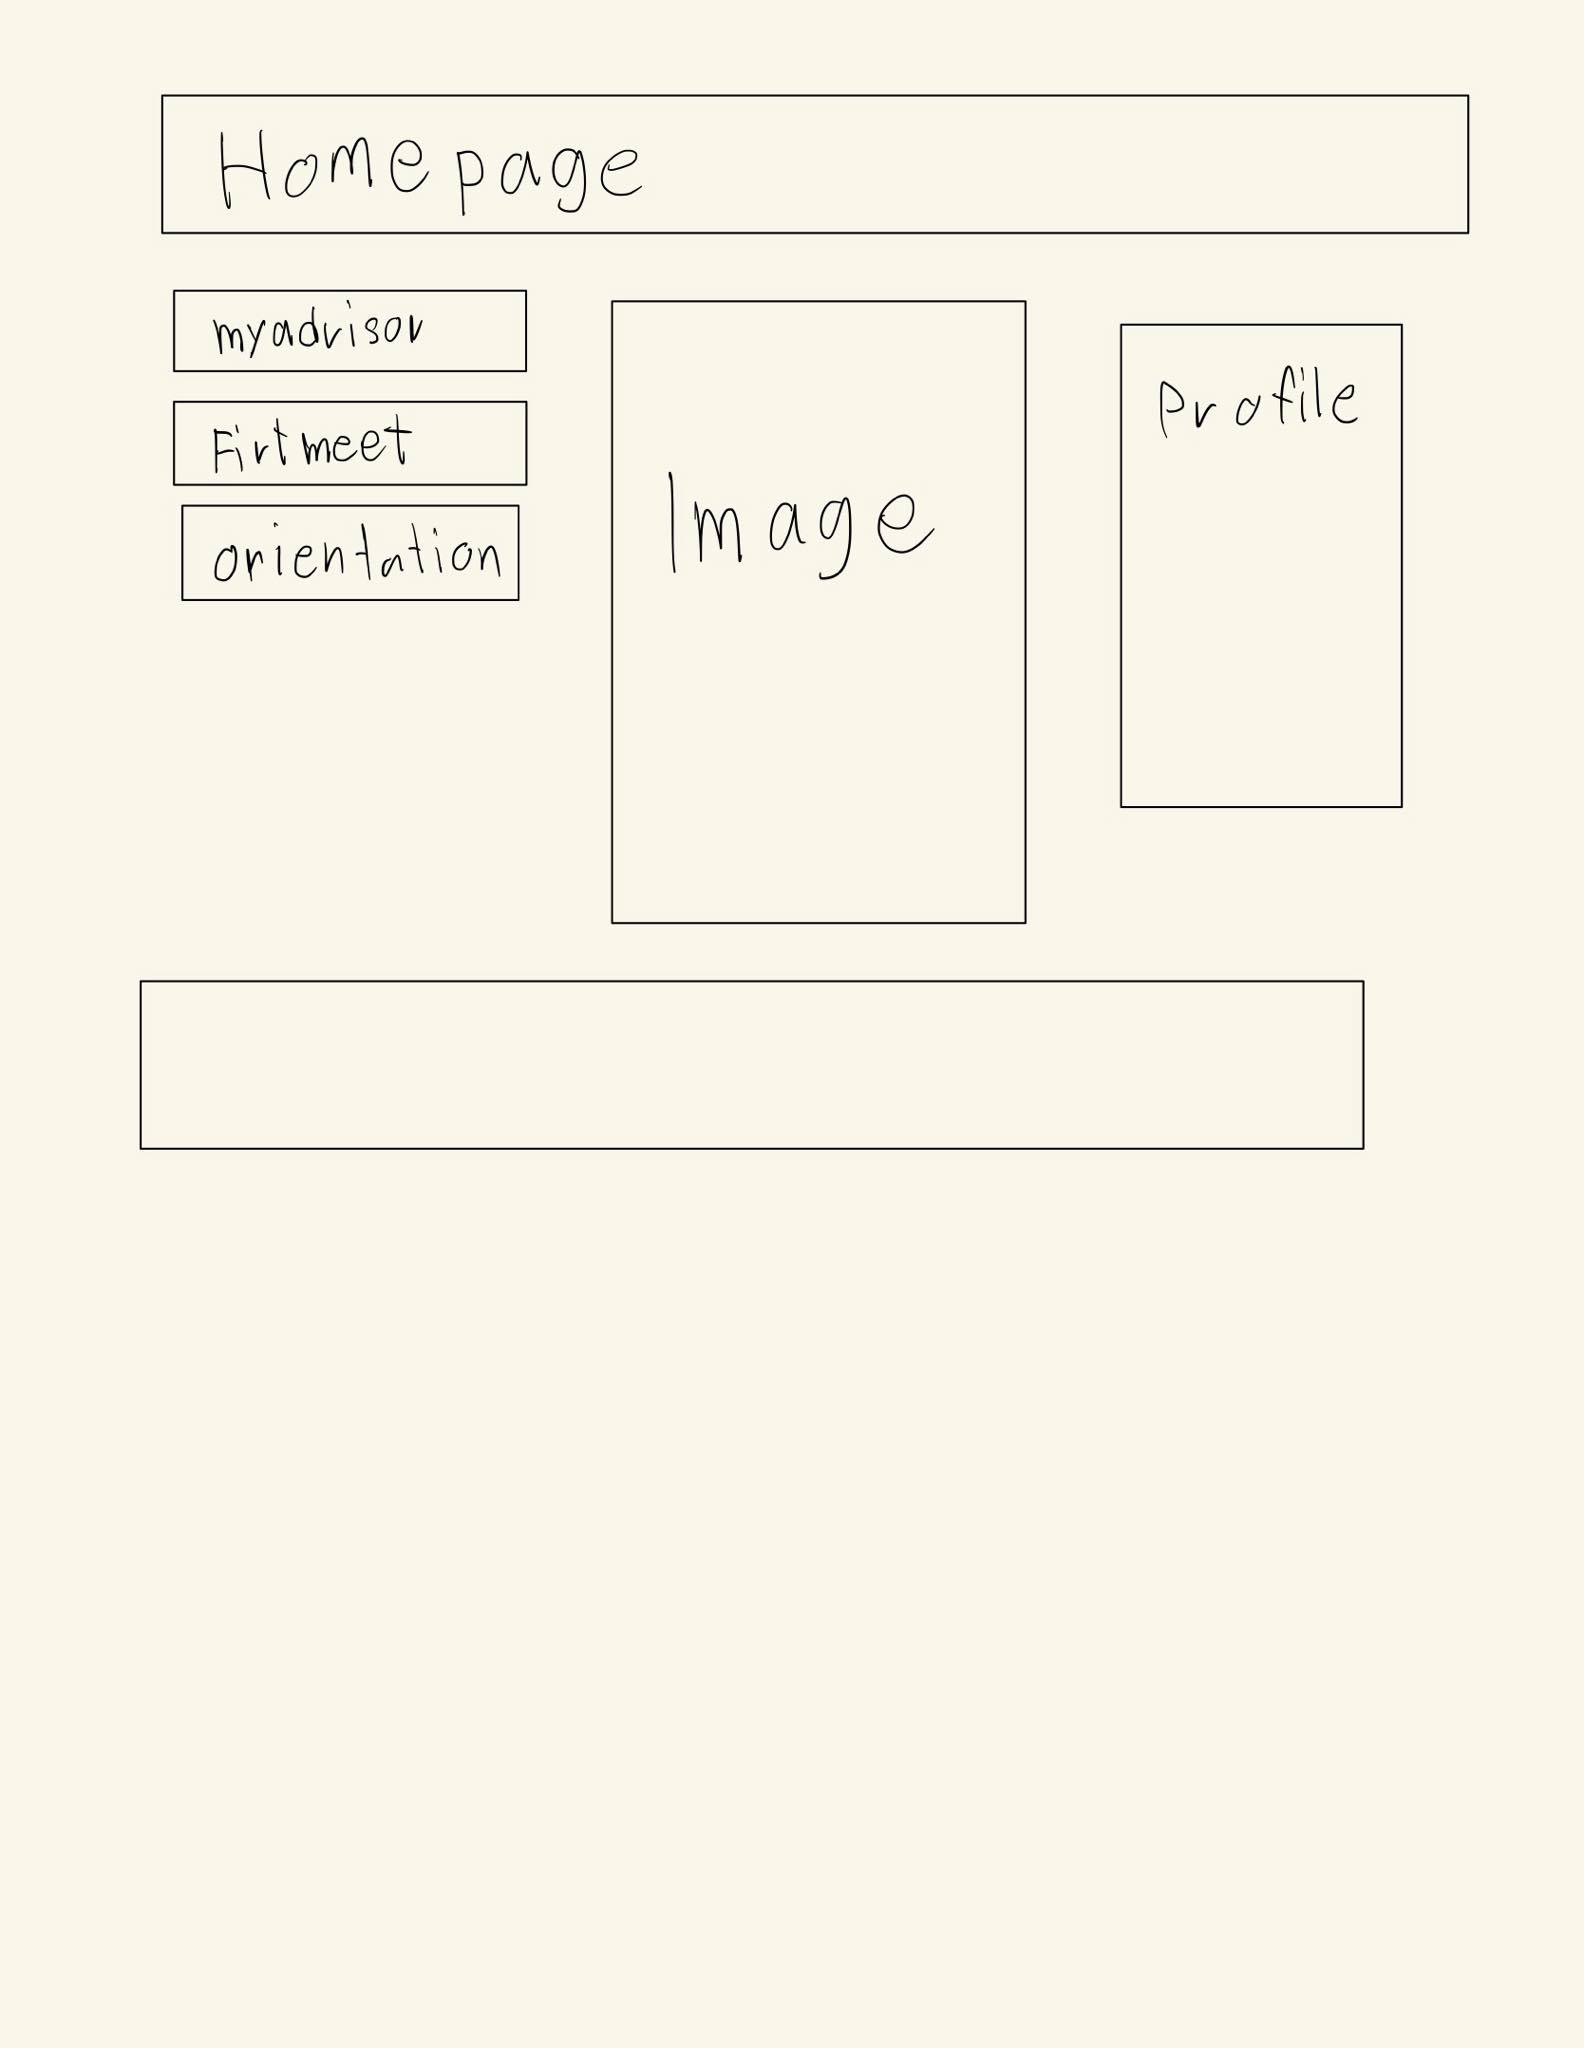 Homepage
myadvisor
Firtmeet
orientation
Image
Profile